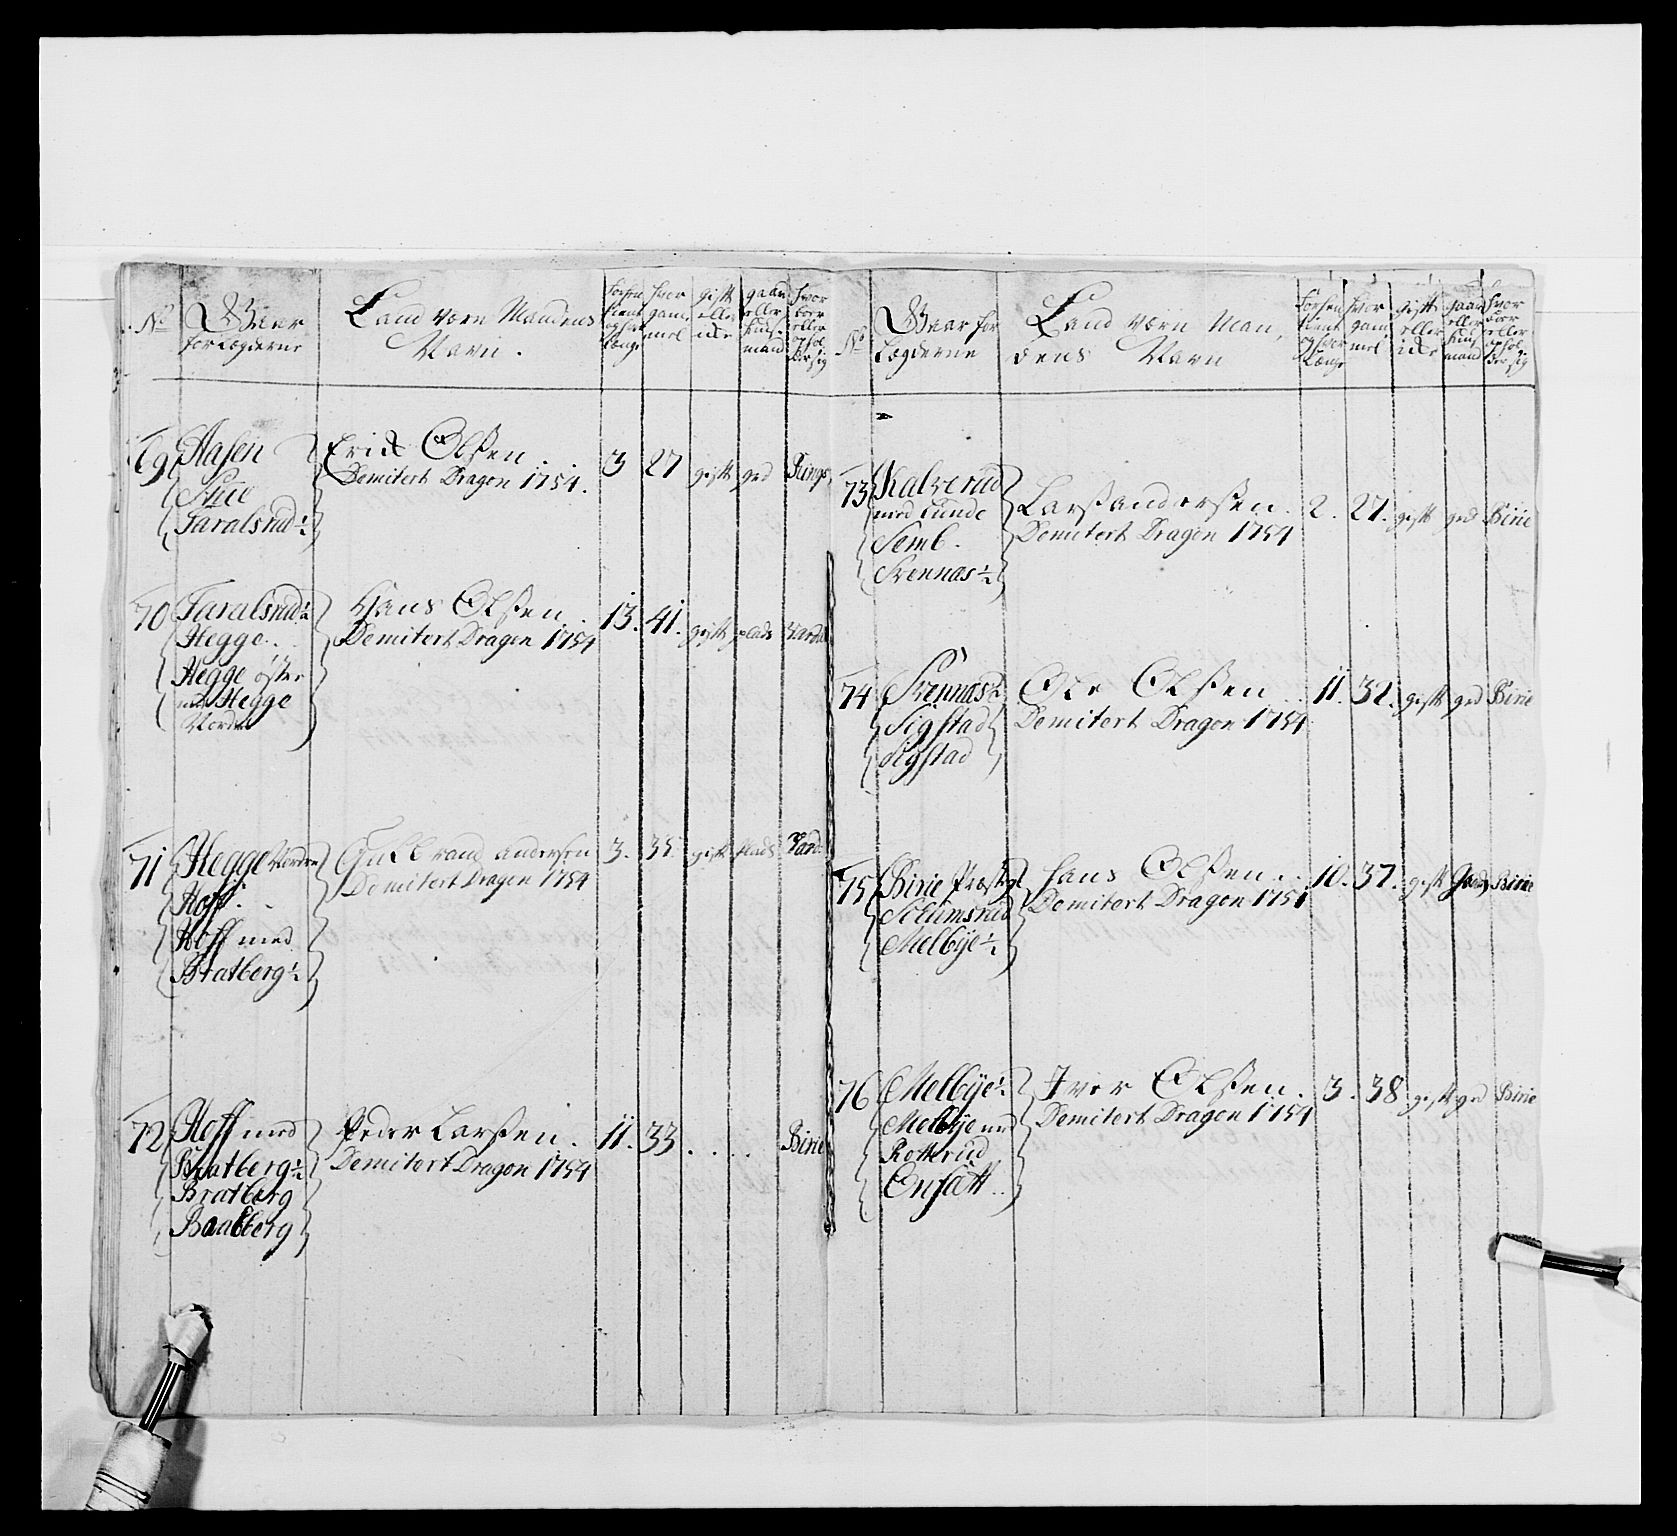 No
Gaar
for Lægderne
Land værn Mandens
Navn.
gam̄el
gift
eller
icke
gaard
eller
huus-
mand
hvor
boer
eller
ophol
der sig
69
Aasen
Stue
Taralsrud ½
Erick Olsen.
Demitert Dragon 1754.
3
27
gift
grd
Rings.
70
Taralsrud ½
Hegge.
Hegge öster
med Hegge
Nordre
Hans Olsen.
Demitert Dragon 1754
13.
41.
gift
plads
Vardal
71
Hegge Nordre
Hoff.
Hoff med
Bratberg ½
Gulbrand andersen
Demitert Dragon 1754
3.
35.
gift
plads
Vard.
72
Hoff med
Bratberg ½
Bratberg
Baalberg
Peder Larsen.
Demitert Dragon 1754
11.
33
Birie
No
Gaar for
Lægderne
Land værn Man,
dens Navn
gam
mel
gift
eller
icke
gaard
eller
huus
mand
hvor
boer
eller
ophol
der sig
73
Kalverud
med Lunde
Semb.
Svennæs ½
Lars andersen.
Demitert Dragon 1754
2.
27.
gift
grd
Birie
74
Svennæs ½
Sigstad
Sigstad
Ole Olsen
Demitert Dragon 1754
11.
32.
gift
grd
Birie
75
Birie Præstgd
Solumsrud
Melbÿe ½
Hans Olsen.
Demitert Dragon 1754
10.
37.
gift
Gaard
Birie
76
Melbÿe ½
Melbÿe med
Rotterud
Ensætt
Iver Olsen.
Demitert Dragon 1754
3.
38
gift
grd
Birie